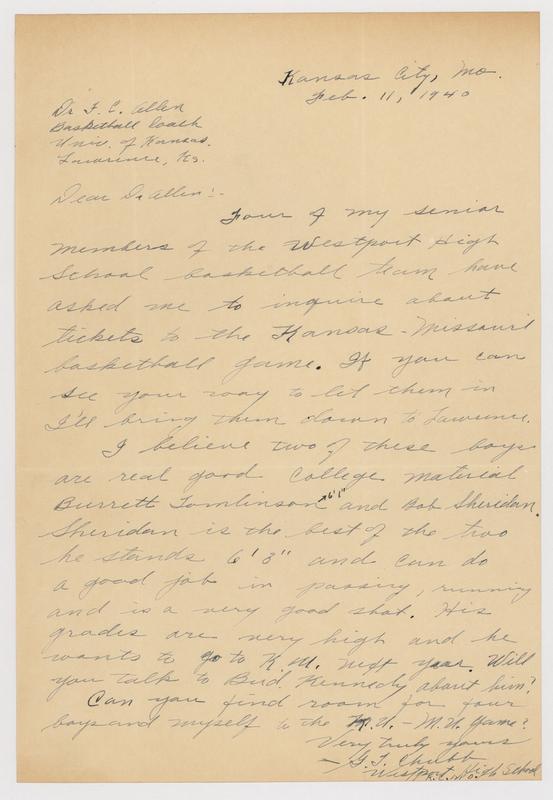 Kansas City, Mo.
Feb. 11, 1940
Dr F. C. Allen
Basketball Coach
Univ. of Kansas.
Lawrence, Ks.
Dear Dr Allen:-
Four of my senior
members of the Westport High
School basketball team have
asked me to inquire about
tickets to the Kansas-Missouri
basketball game. If you can
see your way to let them in
I'll bring them down to Lawrence.
I believe two of these boys
are real good College material
Burrett Tomlinson 6'1" and Bob Sheridan.
Sheridan is the best of the two
he stands 6'3" and can do
a good job in passing, running
and is a very good shot. His
grades are very high and he
wants to go to K.U. next year. Will
you talk to Bud. Kennedy about him?
Can you find room for four
boys and myself to the K.U. - M.U. game?
Very truly yours
G. T. Chubb
Westport High School
K.C. Mo.